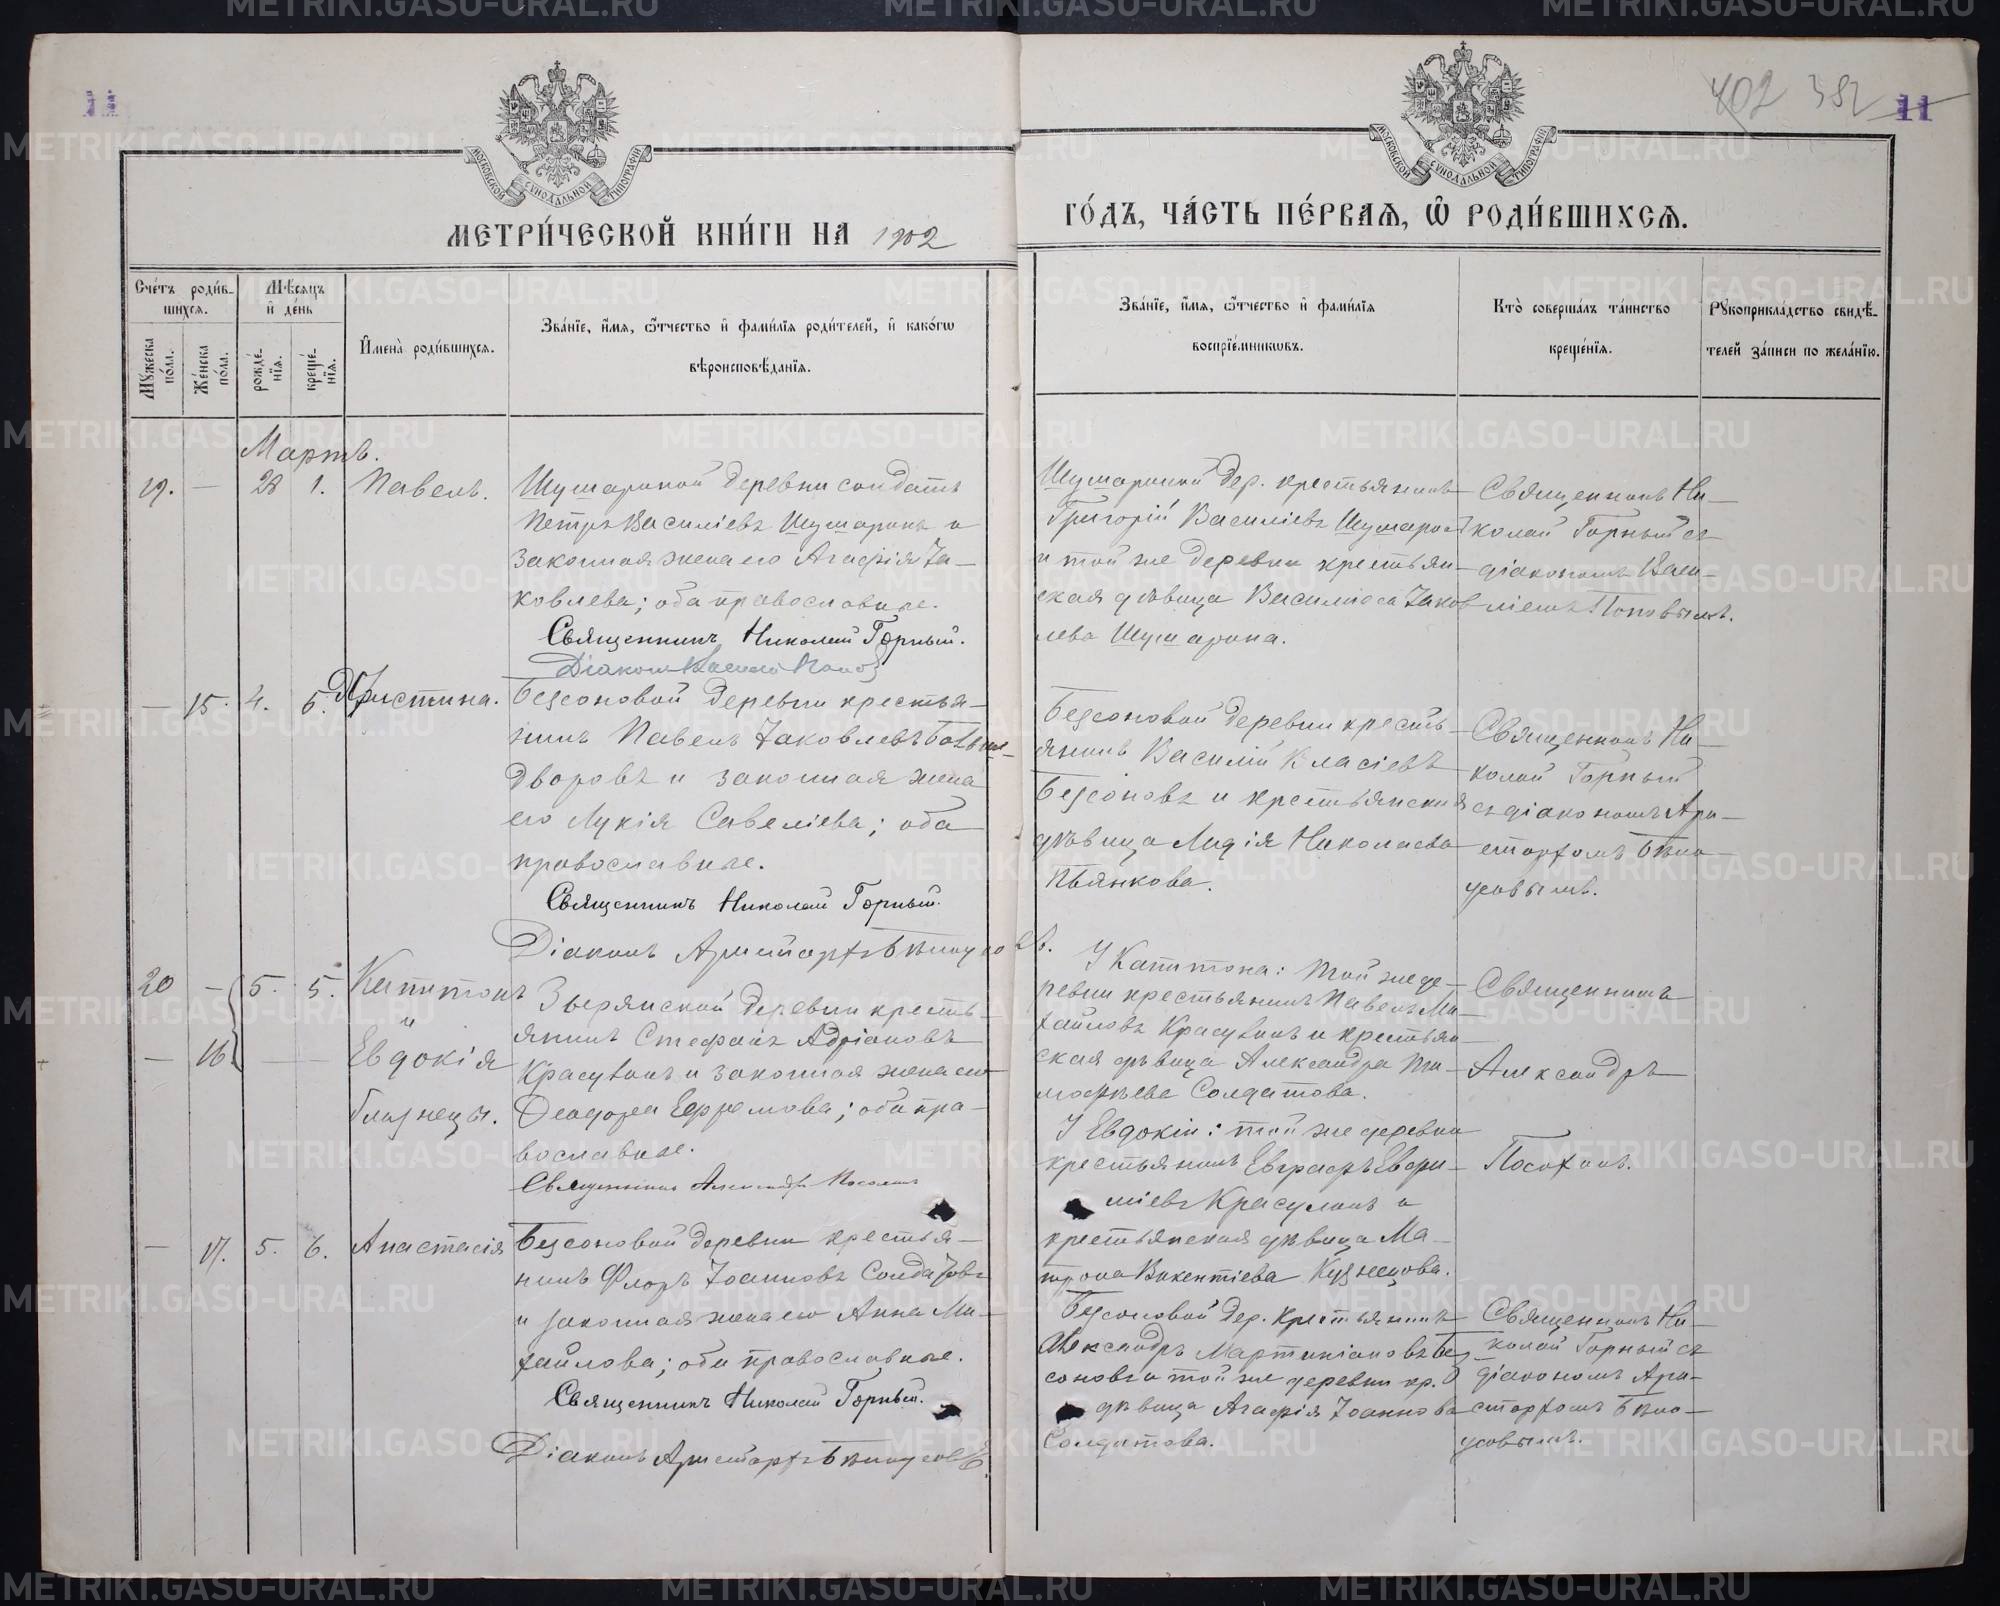 11
402 382 11
МОСКОВСКОЙ СУНОДАЛЬНОЙ ТИПОГРАФІИ
МОСКОВСКОЙ СУНОДАЛЬНОЙ ТИПОГРАФІИ
МЕТРИ́ЧЕСКОЙ КНИ́ГИ НА 1902
ГО́ДЪ, ЧА́СТЬ ПЕ́РВАѦ, Ѿ РОДИ́ВШИХСѦ.
Сче́тъ роди́в-
шихсѧ.
Мꙋжеска по́ла.
Же́нска по́ла.
Мѣ́сѧцъ
и҆ де́нь
рожде́-
нїѧ.
креще́-
нїѧ.
И҆мена̀ роди́вшихсѧ.
Зва́нїе, и҆́мѧ, ѻ҆́тчество и҆ фами́лїѧ роди́телей, и҆ како́гѡ
вѣроисповѣ́данїѧ.
Зва́нїе, и҆́мѧ, ѻ҆́тчество и҆ фами́лїѧ
воспрїе́мникѡвъ.
Кто̀ соверша́лъ та́инство
креще́нїѧ.
Рꙋкоприкла́дство свидѣ́-
телей за́писи по жела́нїю.
Мартъ.
19. — 28 1. Павелъ.
Шушариной деревни солдатъ
Петръ Василіевъ Шушаринъ и
законная жена его Агафія Іа-
ковлева; оба православные.
Священникъ Николай Горный.
Діаконъ Василій Попов
Шушариной дер. крестьянинъ
Григорій Василіевъ Шушарин
и той же деревни крестьян-
ская дѣвица Василисса Іаков
лева Шушарина.
Священникъ Ни-
колай Горный съ
діакономъ Васи-
ліемъ Поповымъ.
— 15. 4. 5. Христина.
Безсоновой деревни крестья-
нинъ Павелъ Іаковлевъ Бѣлыше-
дворовъ и законная жена
его Лукія Савеліева; оба
православные.
Священникъ Николай Горный.
Діаконъ Аристархъ Бѣлоусовъ.
Безсоновой деревни кресть-
янинъ Василій Власіевъ
Безсоновъ и крестьянская
дѣвица Лидія Николаева
Пьянкова.
Священникъ Ни-
колай Горный
съ діакономъ Ари-
стархомъ Бѣло-
усовымъ.
20 — 5. 5. Капитонъ
и
— 16. — — Евдокія
близнецы.
Зырянской деревни кресть-
янинъ Стефанъ Адріановъ
Красулинъ и законная жена его
Ѳеодора Ефремова; оба пра-
вославные.
Священникъ Александръ Посохинъ
У Капитона: той же де-
ревни крестьянинъ Павелъ Ми-
хайловъ Красулинъ и крестьян-
ская дѣвица Александра Ти-
моѳѣева Солдатова.
У Евдокіи: той же деревни
крестьянинъ Евграфъ Евфи-
міевъ Красулинъ и
крестьянская дѣвица Ма-
трона Викентіева Кузнецова.
Священникъ
Александръ
Посохинъ.
— 17. 5. 6. Анастасія
Безсоновой деревни крестья-
нинъ Флоръ Іоанновъ Солдатовъ
и законная жена его Анна Ми-
хайлова; оба православные.
Священникъ Николай Горный.
Діаконъ Аристархъ Бѣлоусовъ.
Безсоновой дер. крестьянинъ
Александръ Мартиніановъ Без
соновъ и той же деревни кр.
дѣвица Агафія Іоаннова
Солдатова.
Священникъ Ни-
колай Горный съ
діакономъ Ари-
стархомъ Бѣло-
усовымъ.
METRIKI.GASO-URAL.RU